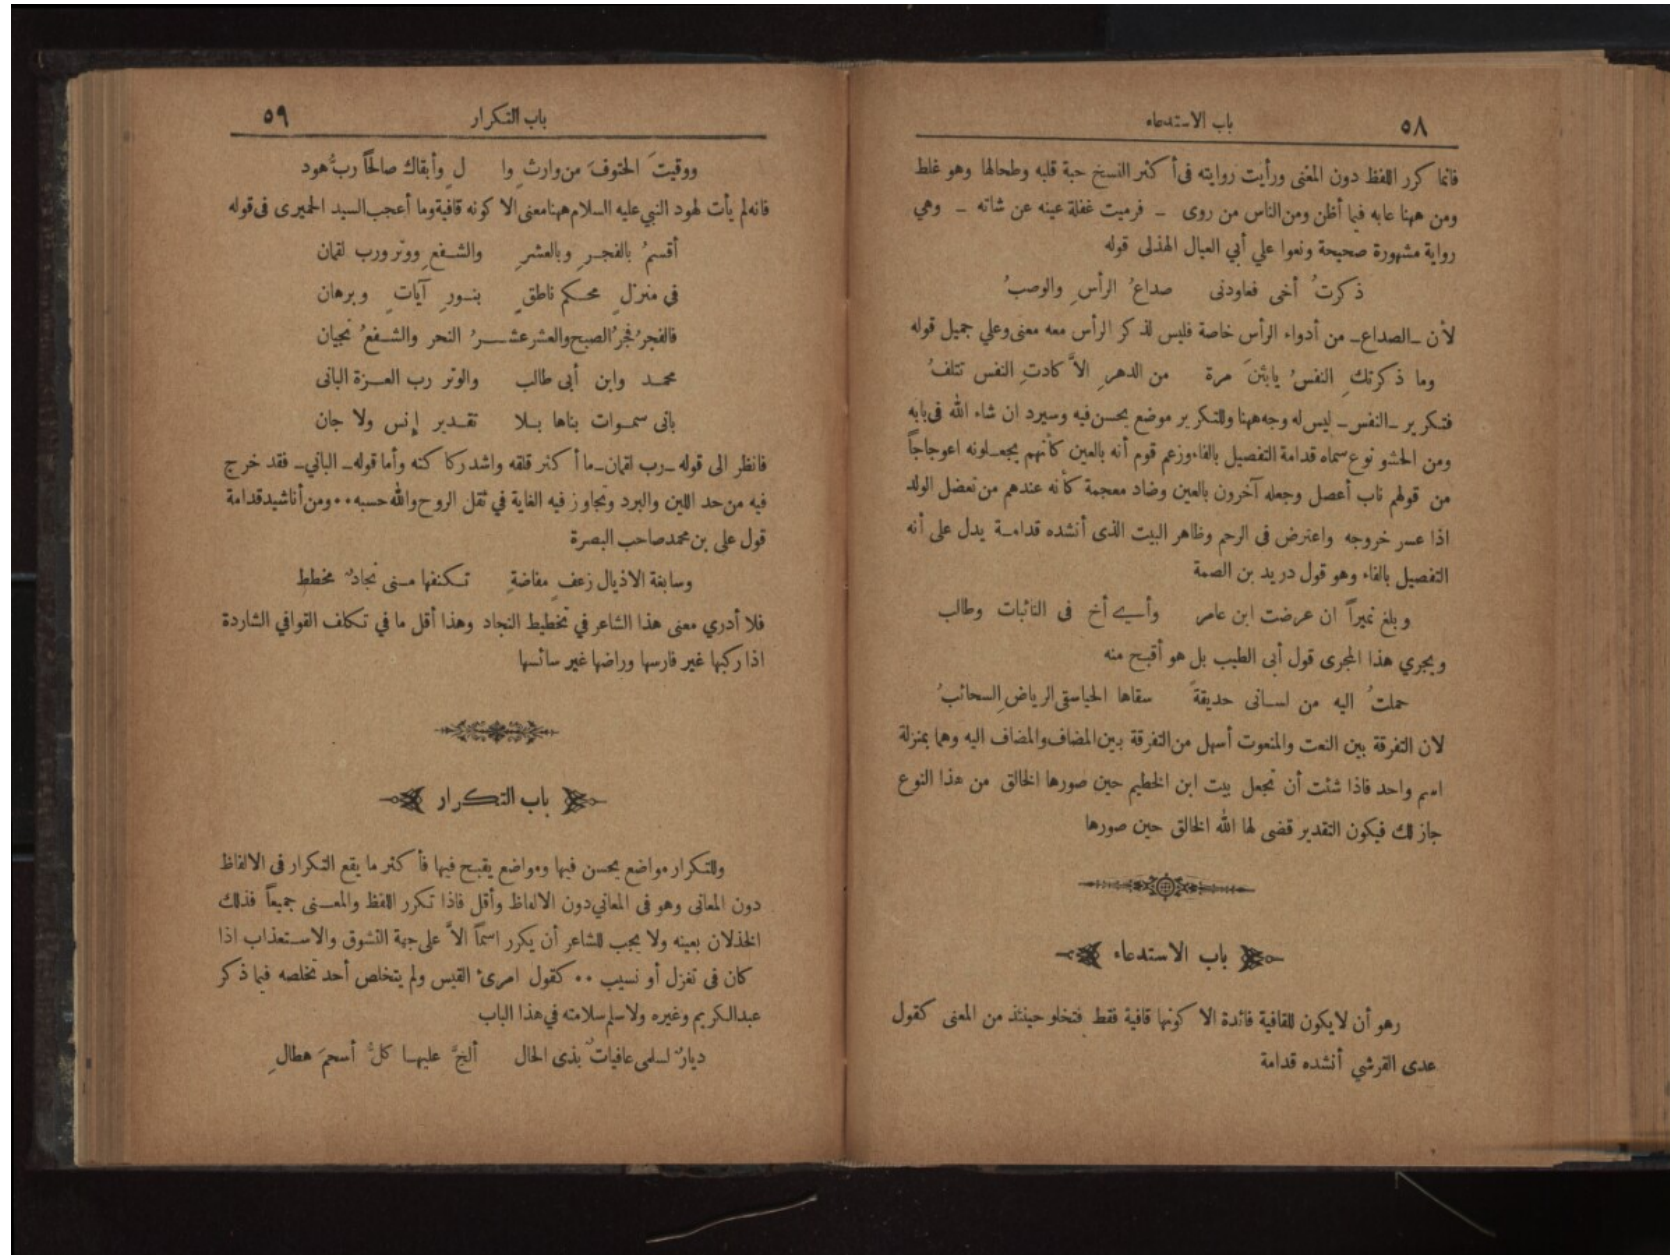 ٥٨
باب الاستدعاء
فانما كرر اللفظ دون المعنى ورأيت روايته فى أكثر النسخ حبة قلبه وطحالها وهو غلط
ومن ههنا عابه فيما أظن ومن الناس من روى ـ فرميت غفلة عينه عن شاته ـ وهي
رواية مشهورة صحيحة ونعوا علي أبي العيال الهذلى قوله
ذكرتُ أخى فعاودنى صداعُ الرأسِ والوصبُ
لأن ـ الصداع ـ من أدواء الرأس خاصة فليس لذكر الرأس معه معنى وعلي جميل قوله
وما ذكرتكِ النفسُ يابثنَ مرة من الدهرِ الاَّ كادتِ النفس تتلفُ
فتكرير ـ النفس ـ ليس له وجه ههنا وللتكرير موضع يحسن فيه وسيرد ان شاء الله فى بابه
ومن الحشو نوع سماه قدامة التفصيل بالفاء وزعم قوم أنه بالعين كأنهم يجعلونه اعوجاجاً
من قولهم ناب أعصل وجعله آخرون بالعين وضاد معجمة كأنه عندهم من تعضل الولد
اذا عسر خروجه واعترض فى الرحم وظاهر البيت الذى أنشده قدامة يدل على أنه
التفصيل بالفاء وهو قول دريد بن الصمة
وبلغ نميراً ان عرضت ابن عامر وأي أخ فى النائبات وطالب
ويجري هذا المجرى قول أبى الطيب بل هو أقبح منه
حملتُ اليه من لسانى حديقةً سقاها الحجا سقى الرياضِ السحائبُ
لان التفرقة بين النعت والمنعوت أسهل من التفرقة بين المضاف والمضاف اليه وهما بمنزلة
اسم واحد فاذا شئت أن تجعل بيت ابن الخطيم حين صورها الخالق من هذا النوع
جاز لك فيكون التقدير قضى لها الله الخالق حين صورها
باب الاستدعاء
وهو أن لايكون للقافية فائدة الا كونها قافية فقط فتخلو حينئذ من المعنى كقول
عدى القرشي أنشده قدامة
باب التكرار
٥٩
ووقيتَ الحتوفَ من وارثٍ وا لٍ وأبقاك صالحاً ربُّ هود
فانه لم يأت لهود النبي عليه السلام ههنا معنى الا كونه قافية وما أعجب السيد الحميرى فى قوله
أقسمُ بالفجرِ وبالعشرِ والشفعِ ووتر ورب لقمان
في منزلٍ محكم ناطقٍ بنورِ آياتٍ وبرهان
فالفجرُ فجرُ الصبح والعشر عشرُ النحر والشفعُ نجيان
محمد وابن أبى طالب والوتر رب العزة البانى
بانى سموات بناها بلا تقدير إنس ولا جان
فانظر الى قوله ـ رب لقمان ـ ما أكثر قلقه واشد ركاكته وأما قوله ـ الباني ـ فقد خرج
فيه من حد اللين والبرد وتجاوز فيه الغاية في ثقل الروح والله حسبه ٠٠ ومن أناشيد قدامة
قول على بن محمد صاحب البصرة
وسابغة الاذيال زعفٍ مفاضةٍ تكنفها منى نجادٌ مخطط
فلا أدري معنى هذا الشاعر في تخطيط النجاد وهذا أقل ما في تكلف القوافي الشاردة
اذا ركبها غير فارسها وراضها غير سائسها
باب التكرار
وللتكرار مواضع يحسن فيها ومواضع يقبح فيها فأكثر ما يقع التكرار فى الالفاظ
دون المعانى وهو فى المعاني دون الالفاظ وأقل فاذا تكرر اللفظ والمعنى جميعاً فذلك
الخذلان بعينه ولا يجب للشاعر أن يكرر اسماً الاَّ على جهة التشوق والاستعذاب اذا
كان فى تغزل أو نسيب ٠٠ كقول امرئ القيس ولم يتخلص أحد تخلصه فيما ذكر
عبدالكريم وغيره ولا سلم سلامته في هذا الباب
ديارٌ لسلمى عافياتٌ بذى الحال ألحَّ عليها كلُّ أسحمَ هطالِ